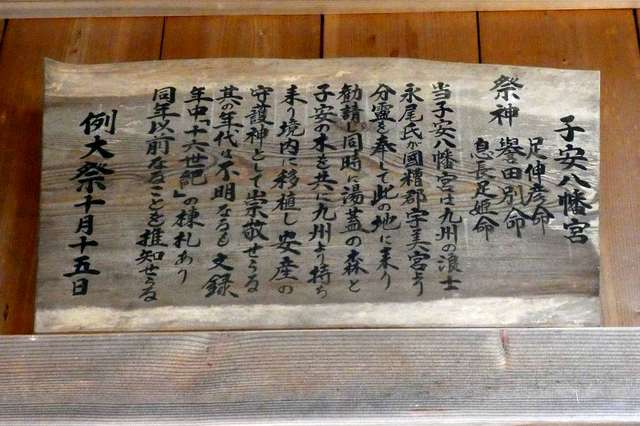 子安八幡宮
祭神
足伸彦命
譽田別命
息長足姫命
当子安八幡宮は九州の浪士
永尾氏が國糟郡宇美宮より
分靈を奉して此の地に来り
勧請し同時に湯蓋の森と
子安の木を共に九州より持ち
来り境内に移植し安産の
守護神として崇敬せらる
其の年代は不明なるも文録
年中「十六世紀」の棟札あり
同年以前なることを推知せらる
例大祭十月十五日